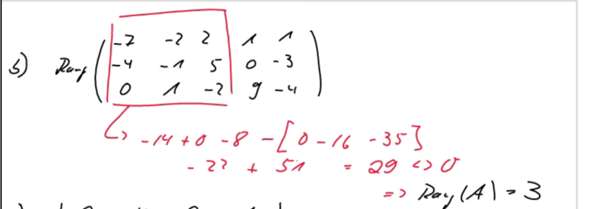 b) Rang ( -7 -2 2 1 1
-4 -1 5 0 -3
0 1 -2 9 -4 )
↳ -14 + 0 - 8 - [0 - 16 - 35]
- 22 + 51 = 29 <> 0
=> Rang(A) = 3